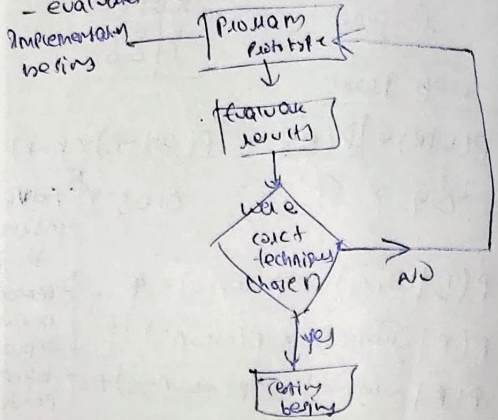 - evaluate
Implementation
begins
Program
prototype
Evaluate
results
were
corect
techniques
chosen
NO
yes
Testing
begins